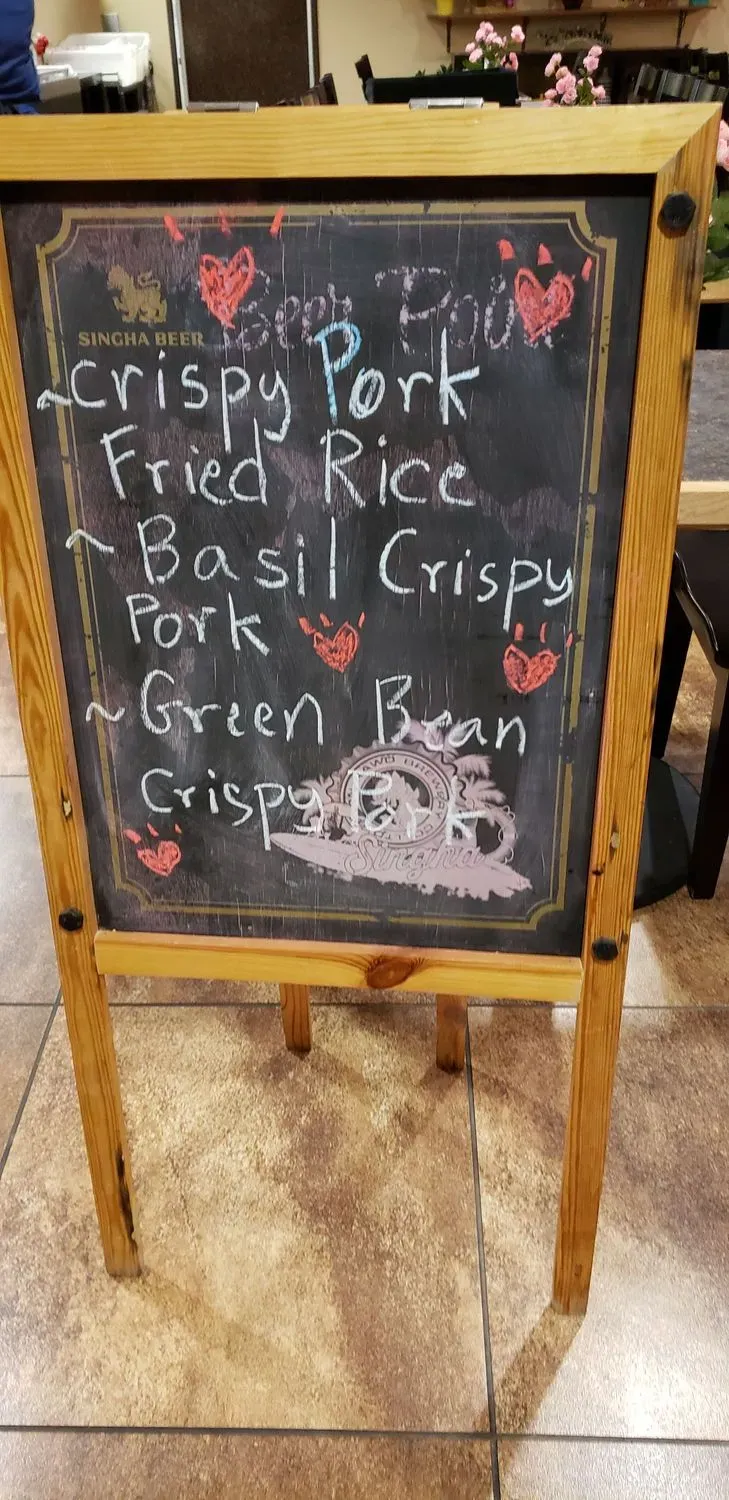 SINGHA BEER
Beer
~Crispy Pork
Fried Rice
~ Basil Crispy
Pork
~ Green Bean
Crispy Pork
Singha